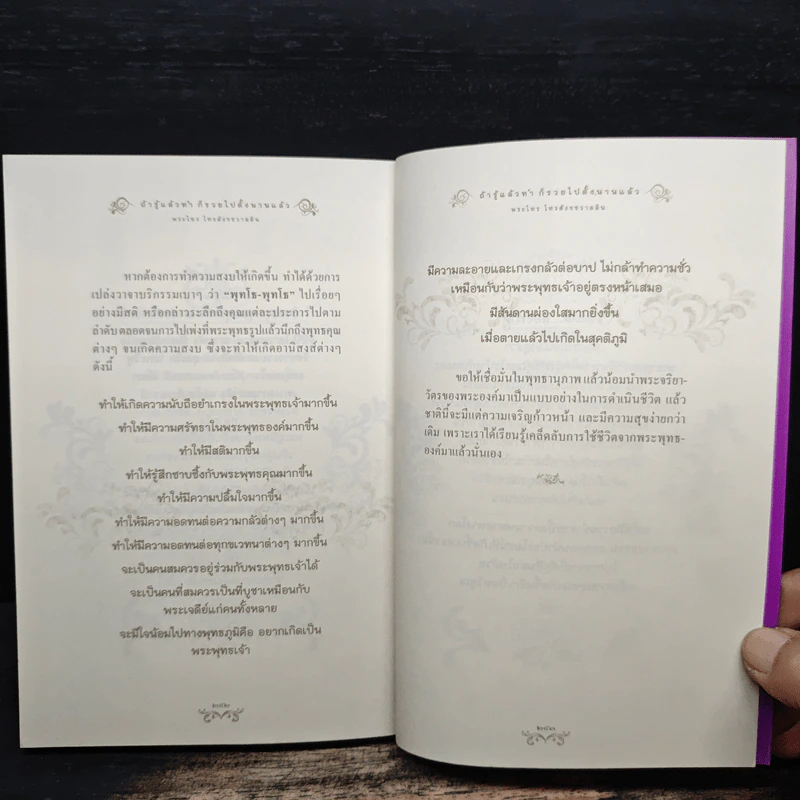 ถ้ารู้แล้วทำ ก็รวยไปตั้งนานแล้ว
หากต้องการทำความสงบให้เกิดขึ้น ทำได้ด้วยการ
เปล่งวาจาบริกรรมเบาๆ ว่า “พุทโธ-พุทโธ” ไปเรื่อยๆ
อย่างมีสติ หรือกล่าวระลึกถึงคุณแต่ละประการไปตาม
ลำดับ ตลอดจนการไปเพ่งที่พระพุทธรูปแล้วนึกถึงพุทธคุณ
ต่างๆ จนเกิดความสงบ ซึ่งจะทำให้เกิดอานิสงส์ต่างๆ
ดังนี้
ทำให้เกิดความนับถือยำเกรงในพระพุทธเจ้ามากขึ้น
ทำให้มีความศรัทธาในพระพุทธองค์มากขึ้น
ทำให้มีสติมากขึ้น
ทำให้รู้สึกซาบซึ้งกับพระพุทธคุณมากขึ้น
ทำให้มีความปลื้มใจมากขึ้น
ทำให้มีความอดทนต่อความกลัวต่างๆ มากขึ้น
ทำให้มีความอดทนต่อทุกขเวทนาต่างๆ มากขึ้น
จะเป็นคนสมควรอยู่ร่วมกับพระพุทธเจ้าได้
จะเป็นคนที่สมควรเป็นที่บูชาเหมือนกับ
พระเจดีย์แก่คนทั้งหลาย
จะมีใจน้อมไปทางพุทธภูมิคือ อยากเกิดเป็น
พระพุทธเจ้า
ถ้ารู้แล้วทำ ก็รวยไปตั้งนานแล้ว
มีความละอายและเกรงกลัวต่อบาป ไม่กล้าทำความชั่ว
เหมือนกับว่าพระพุทธเจ้าอยู่ตรงหน้าเสมอ
มีสันดานผ่องใสมากยิ่งขึ้น
เมื่อตายแล้วไปเกิดในสุคติภูมิ
ขอให้เชื่อมั่นในพุทธานุภาพ แล้วน้อมนำพระจริยา-
วัตรของพระองค์มาเป็นแบบอย่างในการดำเนินชีวิต แล้ว
ชาตินี้จะมีแต่ความเจริญก้าวหน้า และมีความสุขง่ายกว่า
เดิม เพราะเราได้เรียนรู้เคล็ดลับการใช้ชีวิตจากพระพุทธ-
องค์มาแล้วนั่นเอง